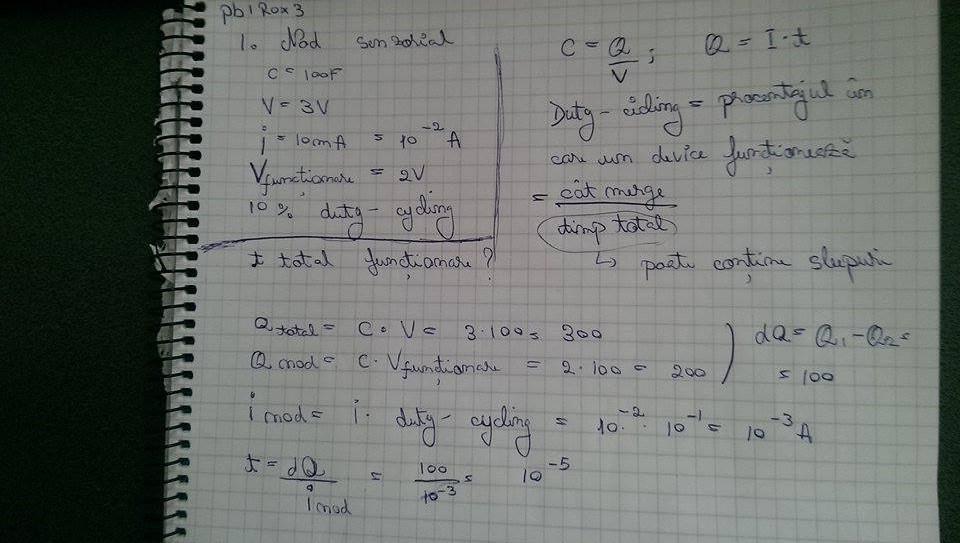 pb 1 Rox 3
1. Nod senzorial
C = 100F
V = 3V
i = 10mA = 10^-2 A
Vfuncționare = 2V
10% duty-cycling
t total funcționare?
C = Q/V ; Q = I·t
Duty-ciding = procentajul în
care un device funcționează
= cât merge
timp total
↳ poate conține sleepuri
Q total = C · V = 3·100 = 300
Q nod = C · Vfuncționare = 2·100 = 200
dQ = Q1 - Q2 =
= 100
i nod = i · duty-cycling = 10^-2 · 10^-1 = 10^-3 A
t = dQ/i nod = 100/10^-3 = 10^-5